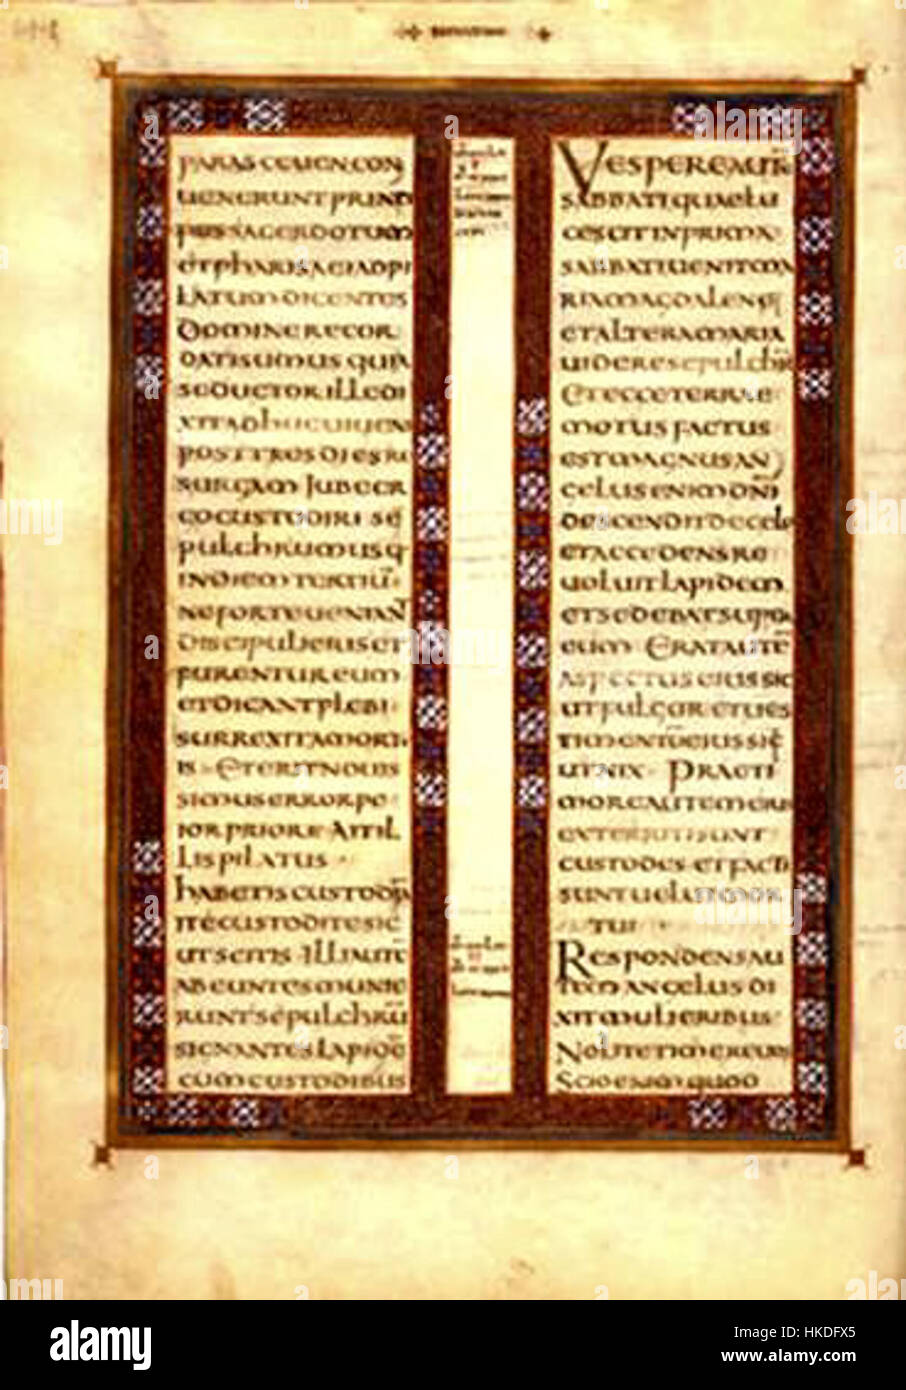 PARASCEUEN CON
UENERUNT PRINCI
PES SACERDOTUM
ET PHARISAEI AD PI
LATUM DICENTES
DOMINE RECOR
DATI SUMUS QUIA
SEDUCTOR ILLE DI
XIT ADHUC UIUENS
POST TRES DIES RE
SURGAM IUBE ER
GO CUSTODIRI SE
PULCHRUM USQ
IN DIEM TERTIŪ
NE FORTE UENIANT
DISCIPULI EIUS ET
FURENTUR EUM
ET DICANT PLEBI
SURREXIT A MORTU
IS · ET ERIT NOUIS
SIMUS ERROR PE
IOR PRIORE · AIT IL
LIS PILATUS
HABETIS CUSTODIA
ITE CUSTODITE SIC
UT SCITIS · ILLI AUTE
ABEUNTES MUNIE
RUNT SEPULCHRŪ
SIGNANTES LAPIDE
CUM CUSTODIBUS
VESPERE AUTĒ
SABBATI QUAE LU
CESCIT IN PRIMA
SABBATI UENIT MA
RIA MAGDALENE
ET ALTERA MARIA
UIDERE SEPULCHRŪ
ET ECCE TERRAE
MOTUS FACTUS
EST MAGNUS AN
GELUS ENIM DNI
DESCENDIT DE CELO
ET ACCEDENS RE
UOLUIT LAPIDEM
ET SEDEBAT SUPER
EUM · ERAT AUTĒ
ASPECTUS EIUS SIC
UT FULGOR ET UES
TIMENTŪ EIUS SIC
UT NIX · PRAE TI
MORE AUTEM EIUS
EXTERRITI SUNT
CUSTODES · ET FACTI
SUNT UELUT MOR
TUI
RESPONDENS AU
TEM ANGELUS DI
XIT MULIERIBUS
NOLITE TIMERE UOS
SCIO ENIM QUOD
alamy
Image ID: HKDFX5
www.alamy.com